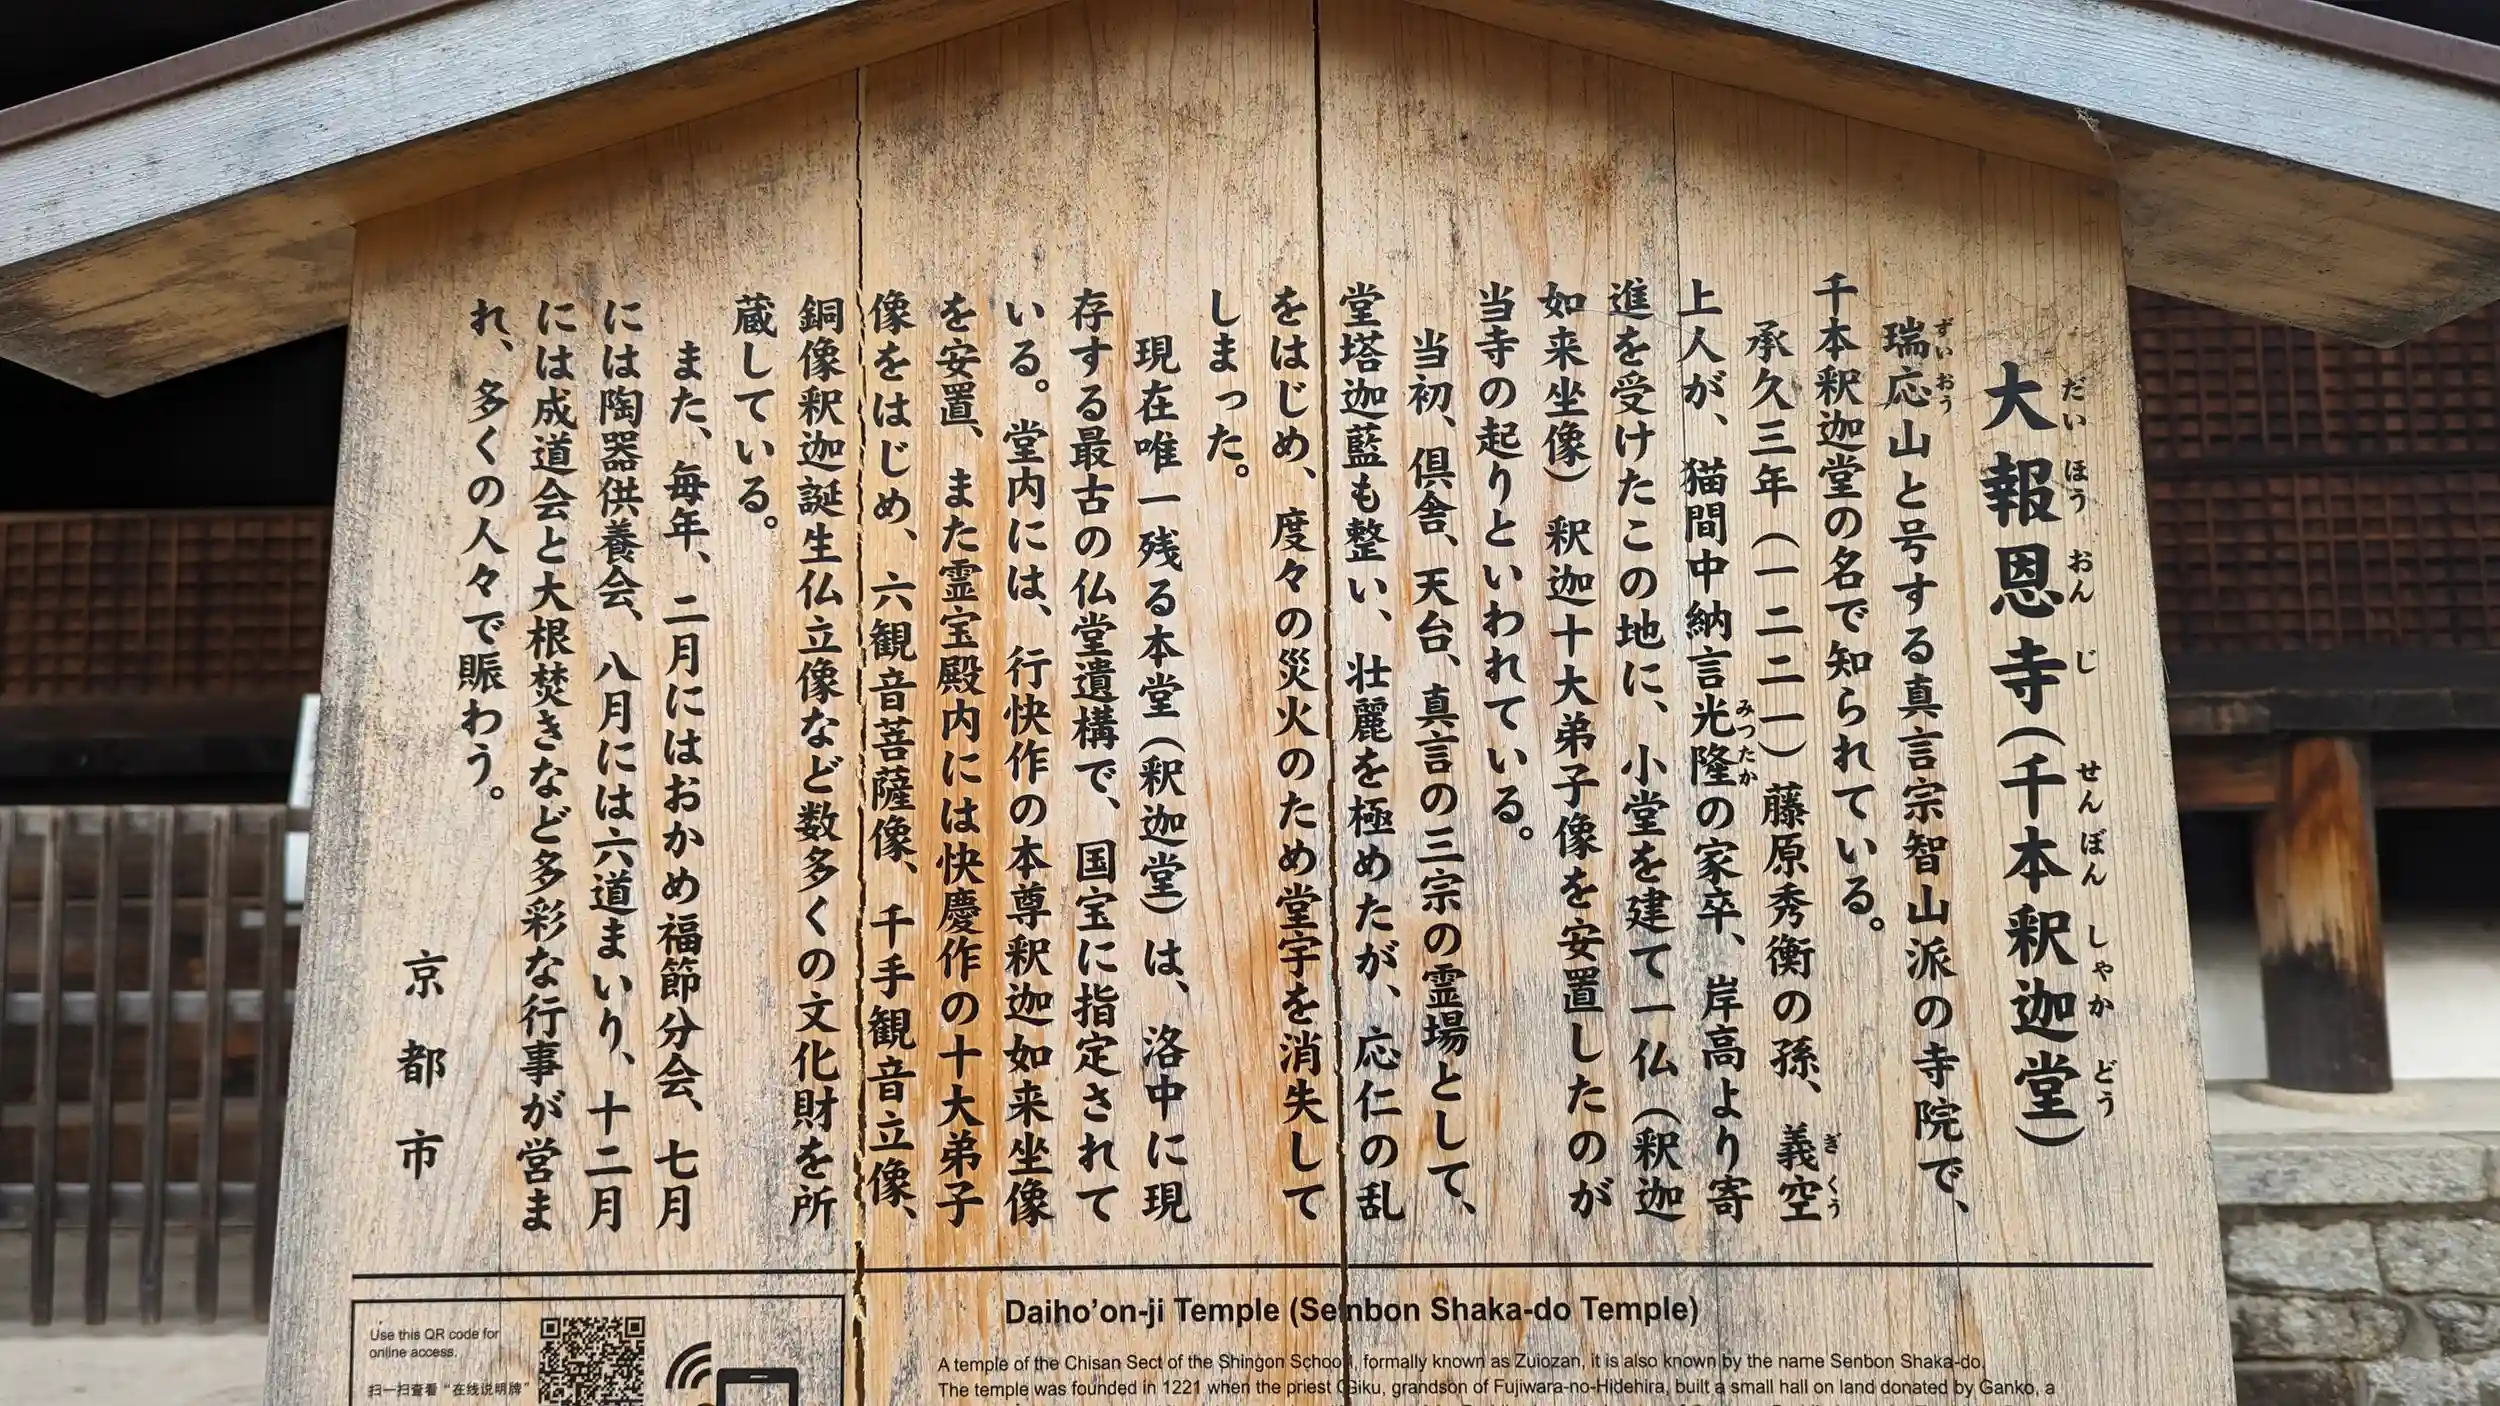 大報恩寺(千本釈迦堂)
だいほうおんじ せんぼんしゃかどう
瑞応山と号する真言宗智山派の寺院で、
ずいおう
千本釈迦堂の名で知られている。
承久三年(一二二一)藤原秀衡の孫、義空
ぎくう
上人が、猫間中納言光隆の家卒、岸高より寄
みつたか
進を受けたこの地に、小堂を建て一仏(釈迦
如来坐像)釈迦十大弟子像を安置したのが
当寺の起りといわれている。
当初、倶舎、天台、真言の三宗の霊場として、
堂塔迦藍も整い、壮麗を極めたが、応仁の乱
をはじめ、度々の災火のため堂宇を消失して
しまった。
現在唯一残る本堂(釈迦堂)は、洛中に現
存する最古の仏堂遺構で、国宝に指定されて
いる。堂内には、行快作の本尊釈迦如来坐像
を安置、また霊宝殿内には快慶作の十大弟子
像をはじめ、六観音菩薩像、千手観音立像、
銅像釈迦誕生仏立像など数多くの文化財を所
蔵している。
また、毎年、二月にはおかめ福節分会、七月
には陶器供養会、八月には六道まいり、十二月
には成道会と大根焚きなど多彩な行事が営ま
れ、多くの人々で賑わう。
京都市
Use this QR code for
online access.
扫一扫查看“在线说明牌”
Daiho’on-ji Temple (Senbon Shaka-do Temple)
A temple of the Chisan Sect of the Shingon School, formally known as Zuiozan, it is also known by the name Senbon Shaka-do.
The temple was founded in 1221 when the priest Giku, grandson of Fujiwara-no-Hidehira, built a small hall on land donated by Ganko, a